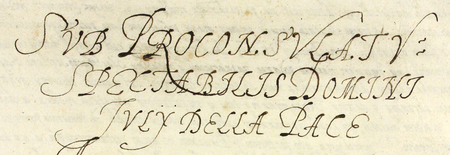 SVB PROCONSVLATV:
SPECTABILIS DOMINI
IVLÿ DELLA PACE